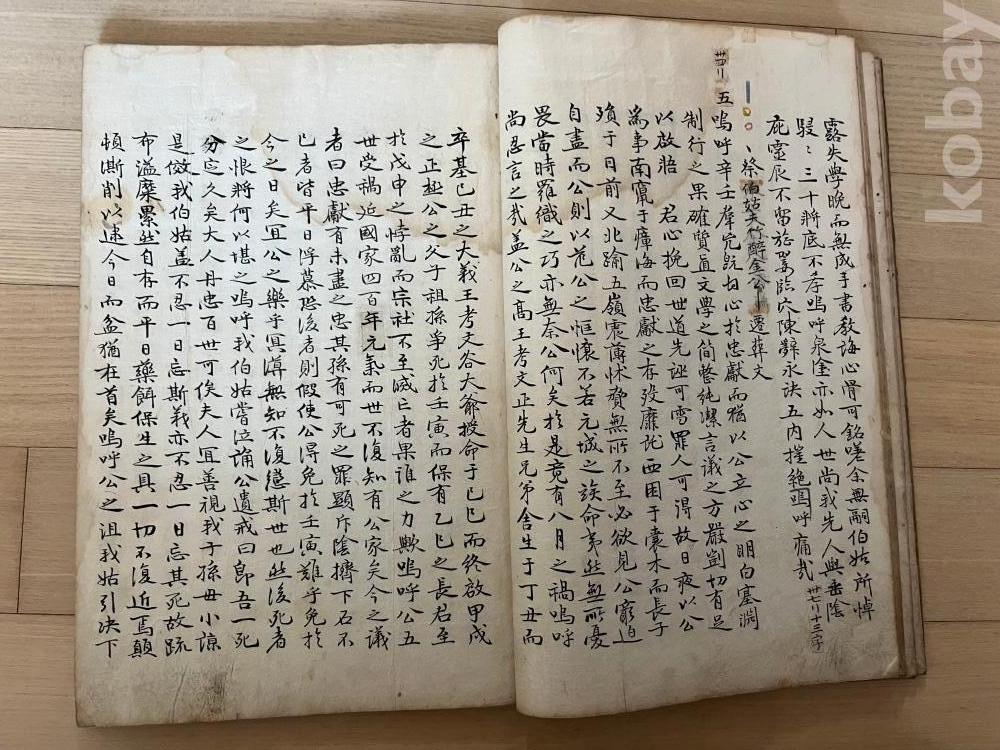 露失學晚而無成手書敎誨心骨可銘嗟余無嗣伯姑所悼
駸〻三十將底不孝嗚呼泉塗亦如人世尚我先人與垂陰
庇靈辰不留旋翣臨穴陳辭永訣五內摧絶嗚呼痛哉 卄七刂十三字
祭伯姑夫竹醉金公遷葬文
五嗚呼辛壬羣兇旣切心於忠獻而猶以公立心之明白塞淵
制行之果確質直文學之簡整純潔言議之方嚴剴切有足
以啟牾 君心挽回世道先誣可雪罪人可得故日夜以公
爲事南竄于瘴海而忠獻之存歿靡訖西困于囊木而長子
殞于目前又北踰五嶺震薄怵
自盡而公則以范公之
畏當時羅織之巧亦無奈公何矣於是竟有八月之禍嗚呼
尚忍言之哉盖公之高王考文正先生兄弟舍生于丁丑而
卒基己丑之大義王考文谷大爺授命于己巳而終啟甲戌
之正極公之父子祖孫爭死於壬寅而保有乙巳之長君至
於戊申之悖亂而宗社不至滅亡者果誰之力歟嗚呼公五
世堂禍近國家四百年元氣而世不復知有公家矣今之議
者曰忠獻有未盡之忠其孫有可死之罪顯斥陰擠下石不
已者時平日浮慕恐後者則假使公得免於壬寅難乎免於
今之日矣宜公之樂乎冥漠無知不復戀斯世也然後死者
之恨將何以堪之嗚呼我伯姑嘗泣誦公遺戒曰卽吾一死
分定久矣大人丹忠百世可俟夫人宜善視我子孫毋小諒
是傚我伯姑盖不忍一日忘斯義亦不忍一日忘其死故疏
布溢糜纍然自存而平日藥餌保生之具一切不復近焉顛
頓澌削以逮今日而盆猶在首矣嗚呼公之沮我姑引決下
kobay